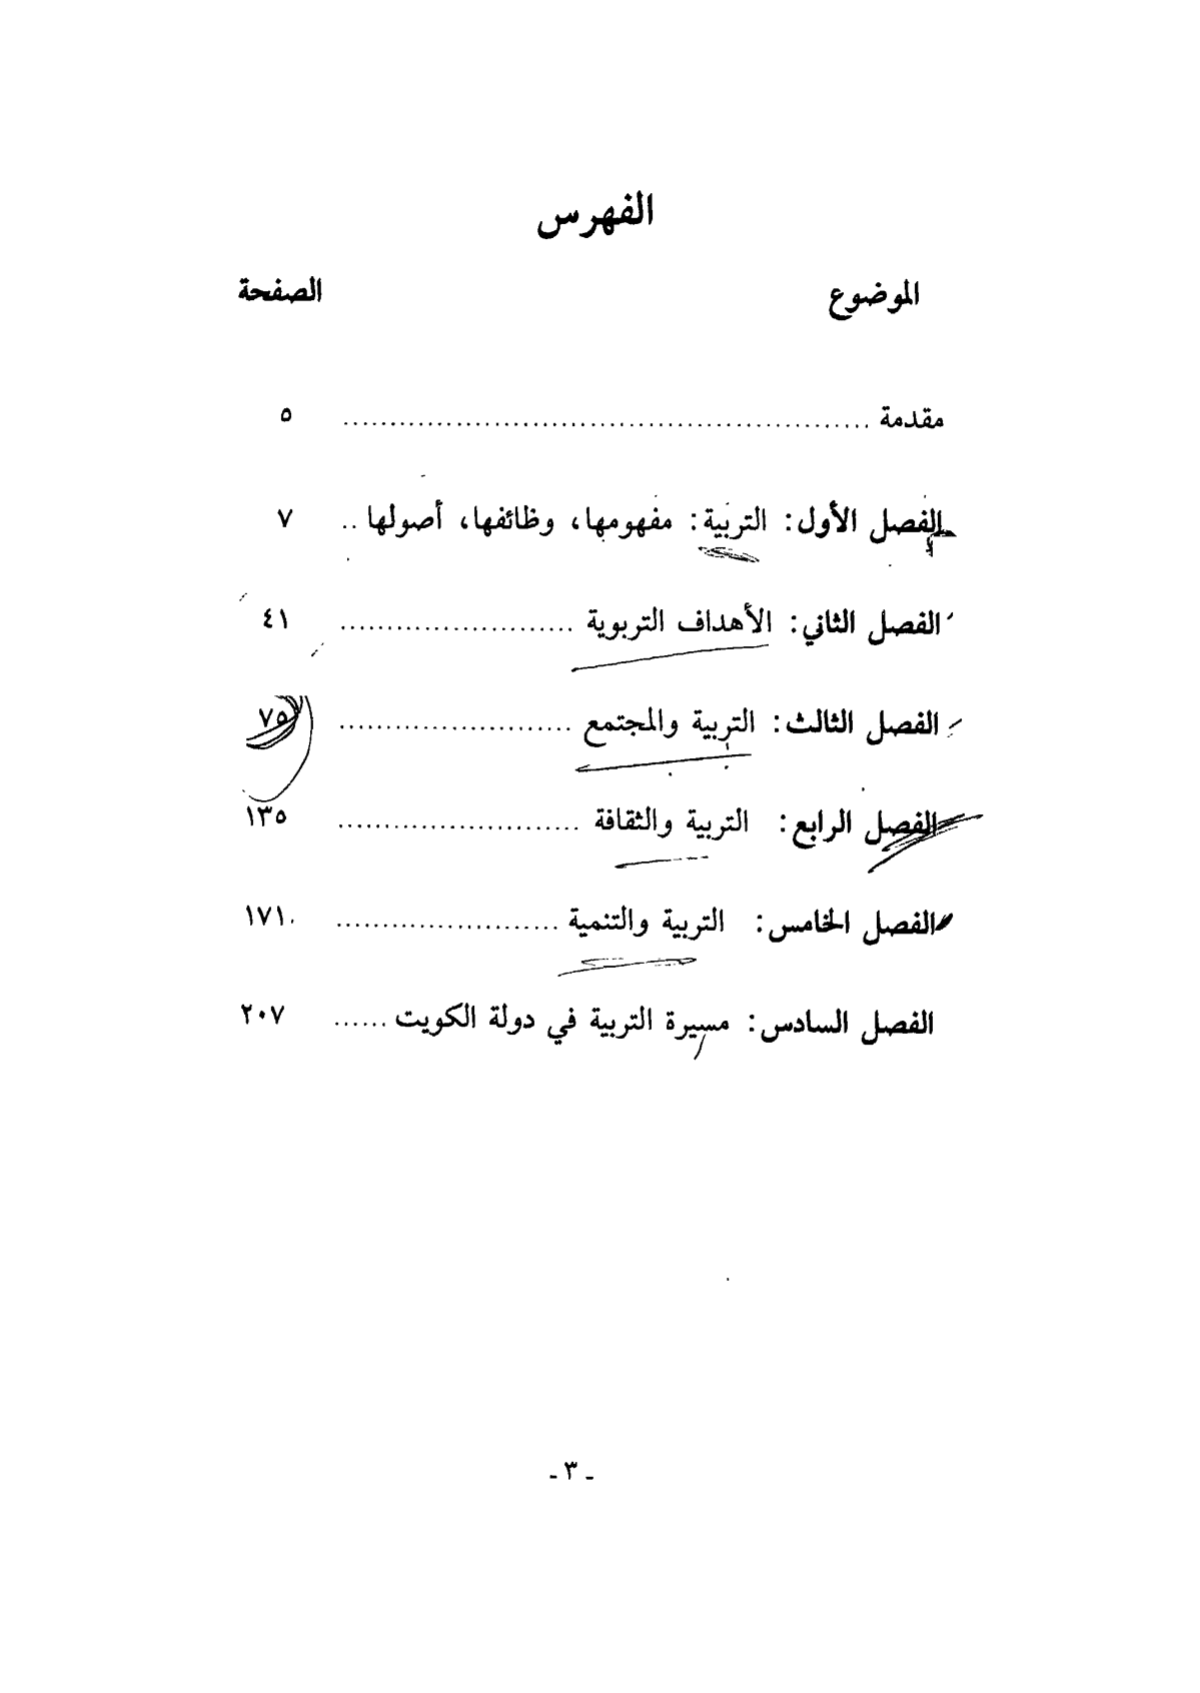 الفهرس
الموضوع الصفحة
مقدمة ........................................................ ٥
الفصل الأول: التربية: مفهومها، وظائفها، أصولها .. ٧
الفصل الثاني: الأهداف التربوية ......................... ٤١
الفصل الثالث: التربية والمجتمع ......................... ٧٥
الفصل الرابع: التربية والثقافة .......................... ١٣٥
الفصل الخامس: التربية والتنمية ........................ ١٧١
الفصل السادس: مسيرة التربية في دولة الكويت ...... ٢٠٧
- ٣ -